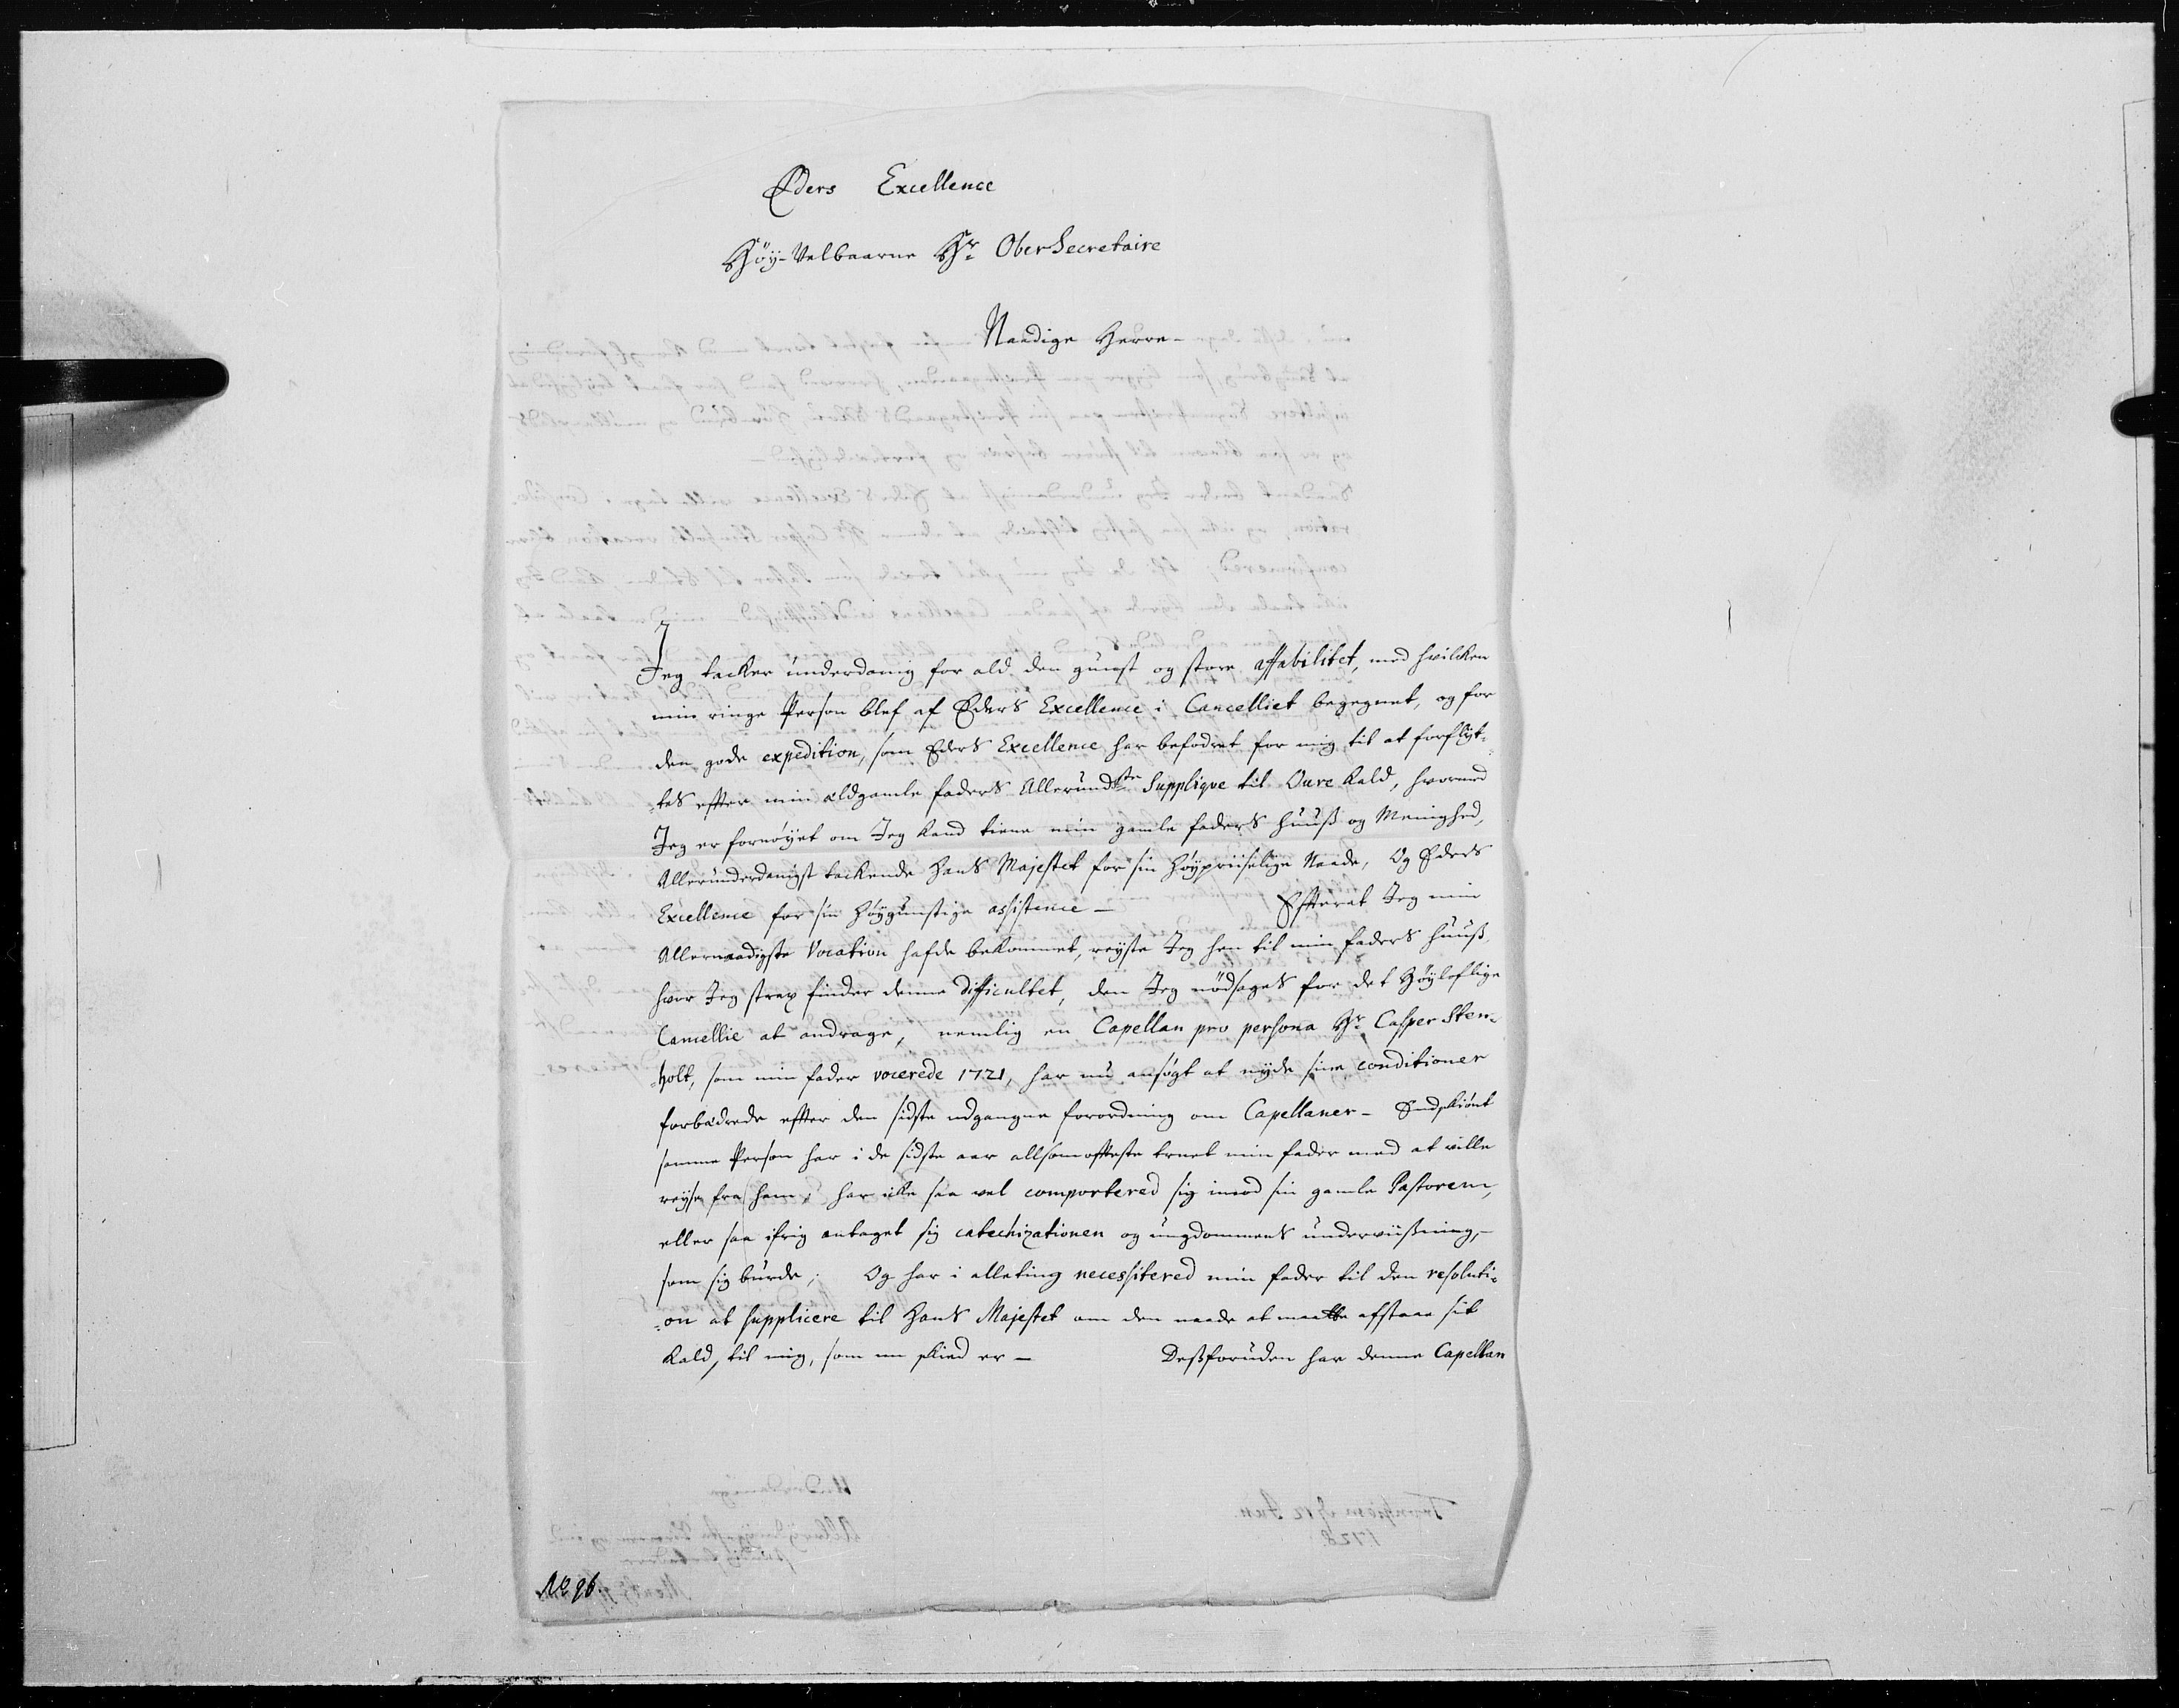 Eders Excellence
Höy-Velbaarne Hr Ober Secretaire
Naadige Herre-
Jeg tacker underdanig for ald den gunst og store affabilitet, med hvilcken
min ringe Person blef af Eders Excellence i Cancelliet begegnet, og for
den gode expedition, som Eders Excellence har befodret for mig til at forflÿt-
-tes effter min eldgamle faders Allerundste Supplique til Oure Kald, hvormed
Jeg er fornöÿet om Jeg kand tiene min gamle faders huuß og Meenighed,
Allerunderdanigst tackende Hans Majestet for sin Höÿpriiselige Naade, Og Eders
Excellence for sin höÿgunstige assistence – Effterat Jeg min
Allernaadigste Vocation hafde bekommet, reÿste Jeg hen til min faders huuß,
hvor Jeg strax finder denne difficultet, den Jeg nödsages for det Höÿloflige
Cancellie at andrage, nemlig en Capellan pro persona Hr Casper Sten-
-holt, som min fader vocerede 1721, har nu ansögt at nÿde sine conditioner
forbedrede effter den sidste udgangne forordning om Capellaner – Endskiönt
samme Person har i de sidste aar allsomofftest truet min fader med at ville
reÿse fra ham; har icke saa vel comportered sig imod sin gamle Pastorem,
eller saa ifrig antaget sig catechizationen og ungdommens underviißning,
som sig burde; Og har i alleting necessitered min fader til den resoluti-
-on at supplicere til Hans Majestet om den naade at maatte afstaae sit
Kald, til mig, som nu skied er – Deßforuden har denne Capellan
No 96.